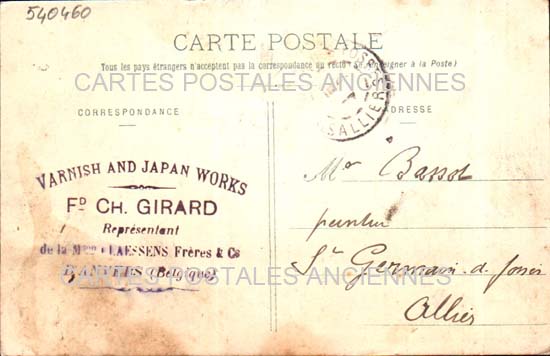 540460
CARTE POSTALE
Tous les pays étrangers n'acceptent pas la correspondance au recto (Se renseigner à la Poste)
CARTES POSTALES ANCIENNES
CORRESPONDANCE
ADRESSE
ALLIER
VARNISH AND JAPAN WORKS
FD CH. GIRARD
Représentant
de la Mson CLAESSENS Frères & Cs
D'ANVERS (Belgique)
Mr Bassot
peintre
St Germain-d-fossés
Allier
CARTES POSTALES ANCIENNES